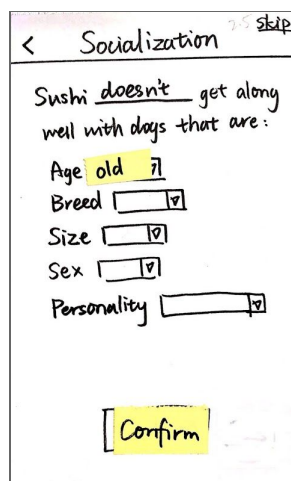 2.5 skip
< Socialization
Sushi doesn't get along
well with dogs that are:
Age old
Breed
Size
Sex
Personality
Confirm